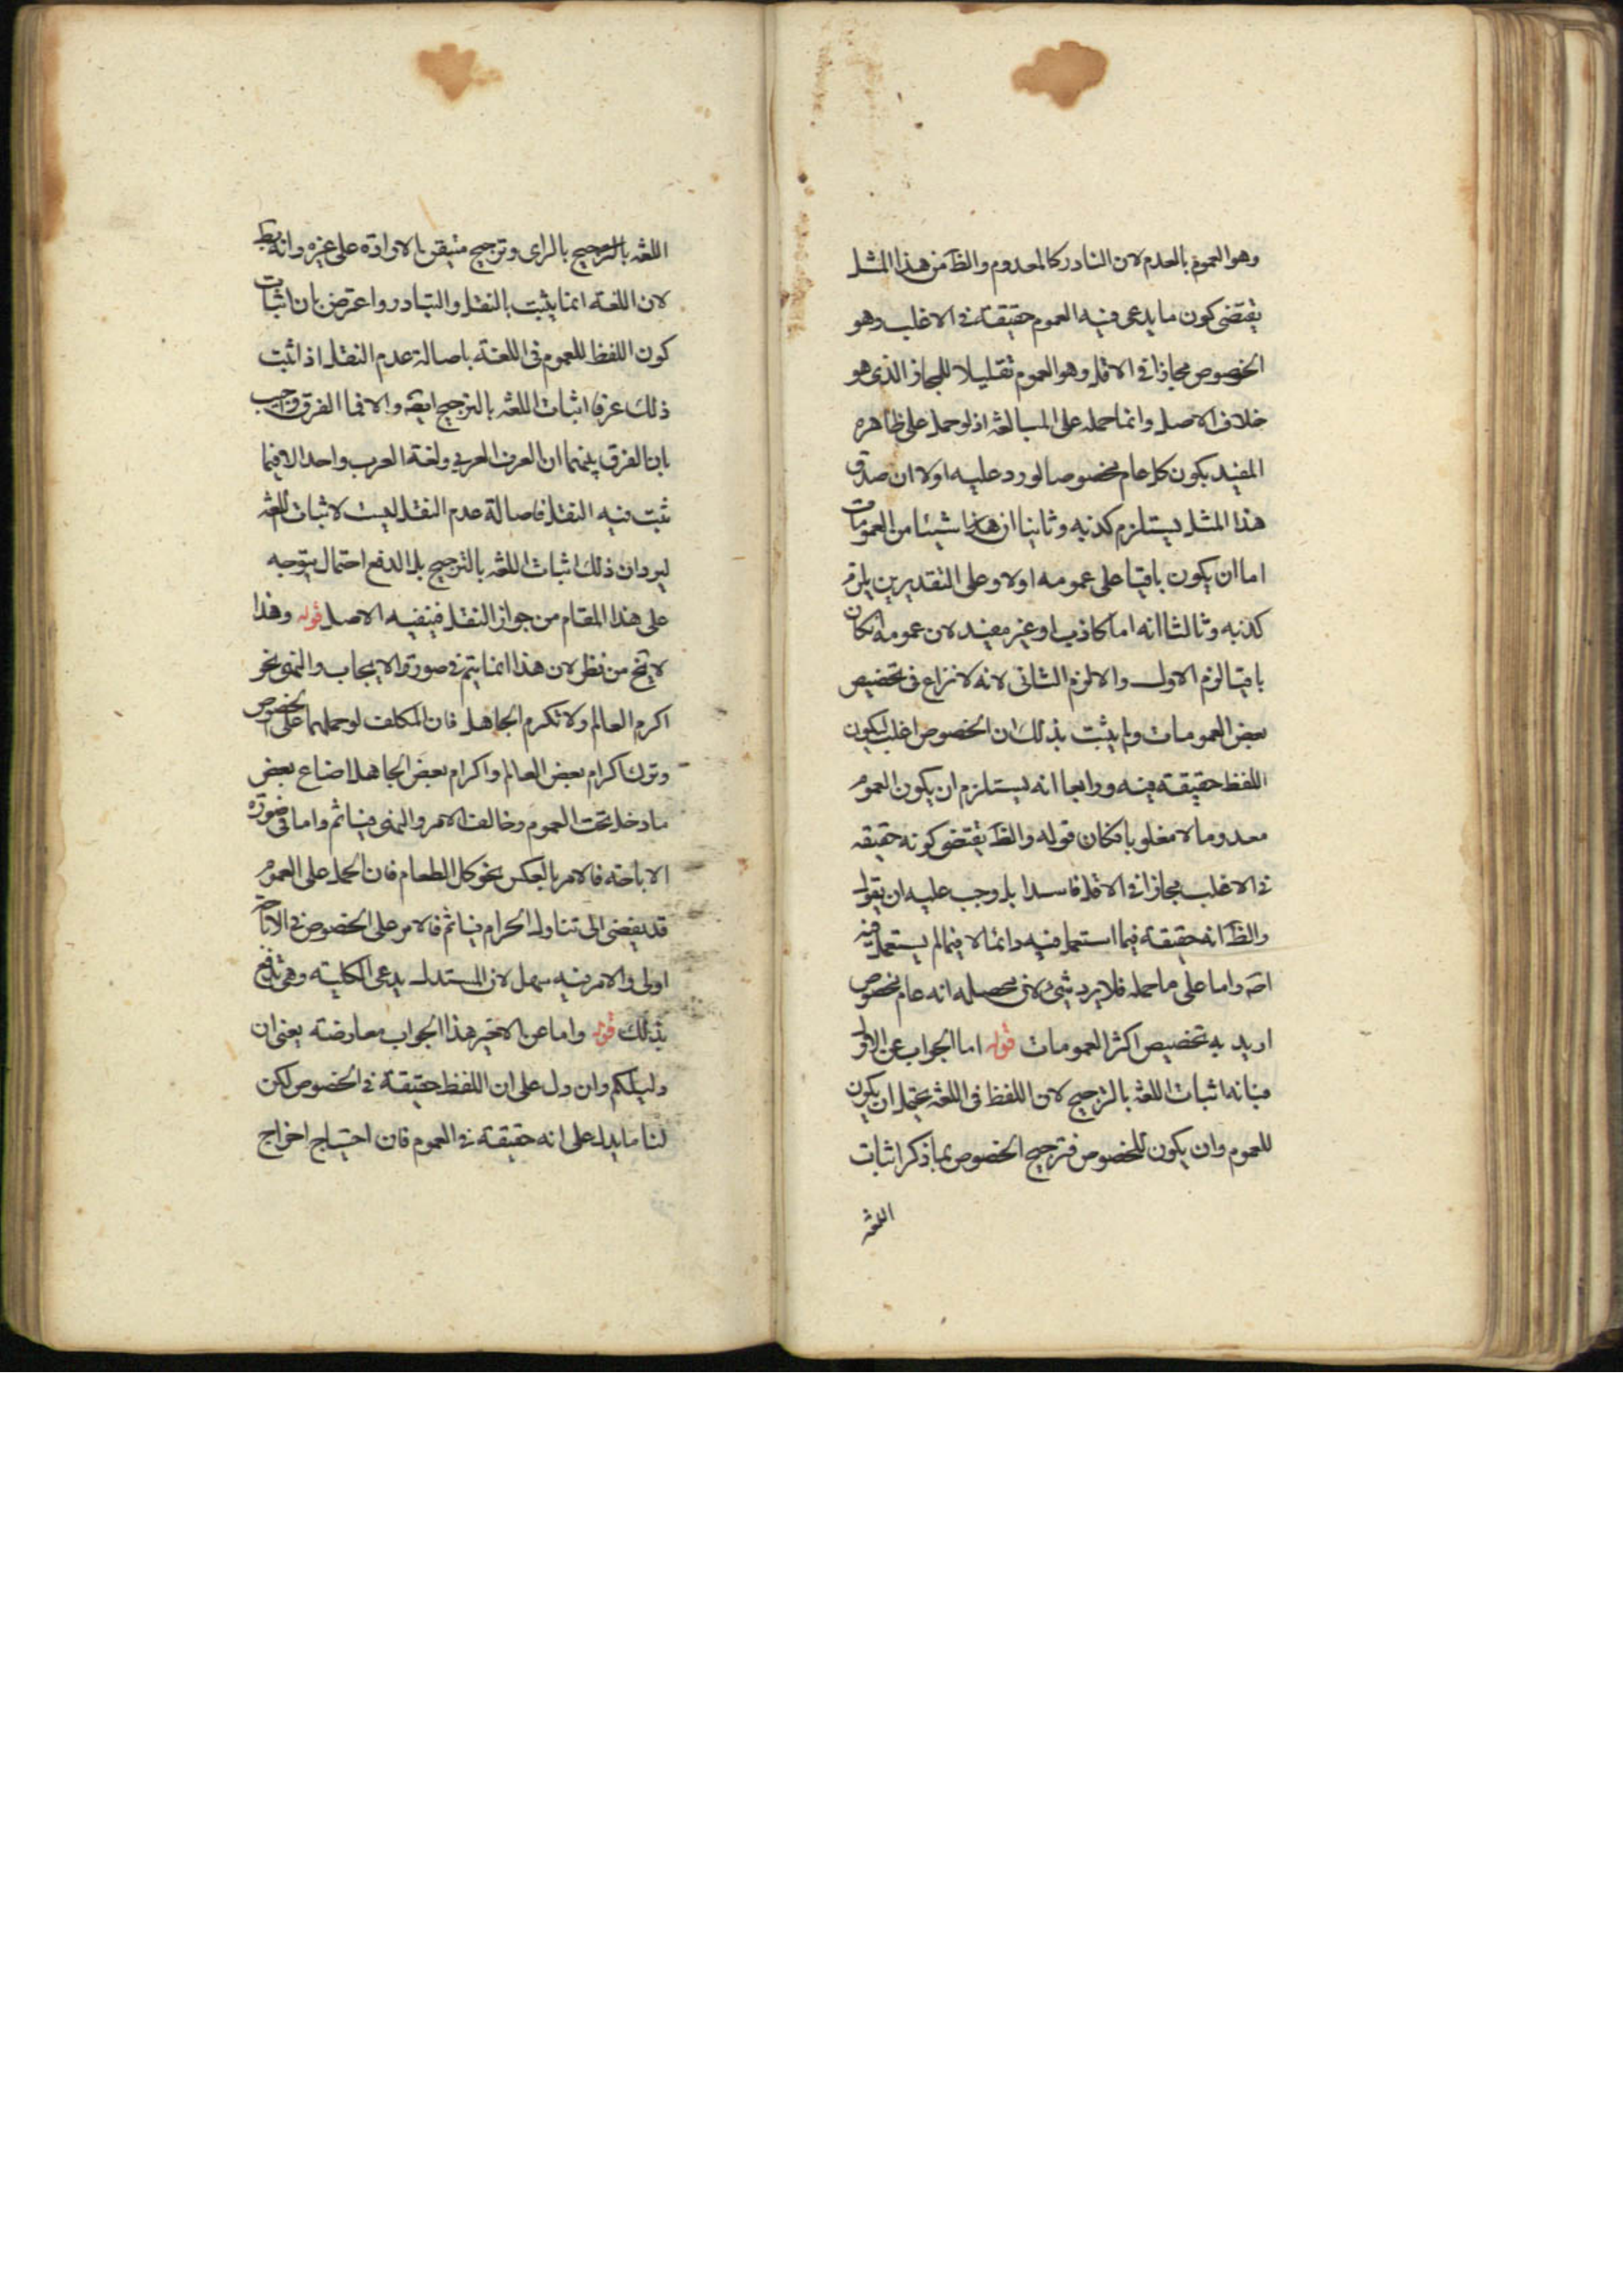 وهو العموم بالعدم لان النادر كالمعدوم والظ من هذا المثل
يقتضى كون ما يدعى فيه العموم حقيقة فى الاغلب وهو
الخصوص مجازا فى الاقل وهو العموم تقليلا للمجاز الذى هو
خلاف الاصل وانما حمله على المبالغة اذ لو حمل على ظاهره
المفيد بكون كل عام مخصوصا لورد عليه اولا ان صدق
هذا المثل يستلزم كذبه وثانيا ان هذا شيئا من العمومات
اما ان يكون باقيا على عمومه اولا وعلى التقديرين يلزم
كذبه وثالثا انه اما كاذب او غير مفيد لان عمومه ان كان
باقيا لزم الاول والا لزم الثانى لانه لا نزاع فى تخصيص
بعض العمومات ولم يثبت بذلك ان الخصوص اغلب ليكون
اللفظ حقيقة فيه ورابعا انه يستلزم ان يكون العموم
معدوما لا مغلوبا فكان قوله والظ يقتضى كونه حقيقه
فى الاغلب مجازا فى الاقل فاسدا بل وجب عليه ان يقول
والظ انه حقيقة فيما استعمل فيه دائما لا فيما لم يستعمل فيه
اصه واما على ما حمله فلا يرد شىء لان محصله انه عام مخصوص
اريد به تخصيص اكثر العمومات قوله اما الجواب عن الاول
فبانه اثبات اللغة بالترجيح لان اللفظ فى اللغة يحتمل ان يكون
للعموم وان يكون للخصوص فترجيح الخصوص بما ذكر اثبات
اللغة
اللغة بالترجيح بالراى وترجيح متيقن الارادة على غيره وانه بط
لان اللغة انما يثبت بالنقل والتبادر واعترض بان اثبات
كون اللفظ للعموم فى اللغة باصالة عدم النقل اذا ثبت
ذلك عرفا اثبات اللغة بالترجيح ايضه والا فما الفرق واجيب
بان الفرق بينهما ان العرف العربى ولغة العرب واحد الا فيما
ثبت فيه النقل فاصالة عدم النقل ليست لاثبات اللغة
ليرد ان ذلك اثبات اللغة بالترجيح بل لدفع احتمال يتوجه
على هذا المقام من جواز النقل فينفيه الاصل قوله وهذا
لا يخ من نظر لان هذا انما يتم فى صورة الايجاب والنهى نحو
اكرم العالم ولا تكرم الجاهل فان المكلف لو حملهما على الخصوص
وترك اكرام بعض العالم واكرام بعض الجاهل اضاع بعض
ما دخل تحت العموم وخالف الامر والنهى فياثم واما فى صورة
الاباحة فالامر بالعكس نحو كل الطعام فان الحمل على العموم
قد يفضى الى تناول الحرام فياثم فالامر على الخصوص فى الاباحة
اولى والامر فيه سهل لان المستدل يدعى الكلية وهى تندفع
بذلك قوله واما عن الاخير هذا الجواب معارضة يعنى ان
دليلكم وان دل على ان اللفظ حقيقة فى الخصوص لكن
لنا ما يدل على انه حقيقة فى العموم فان احتياج اخراج